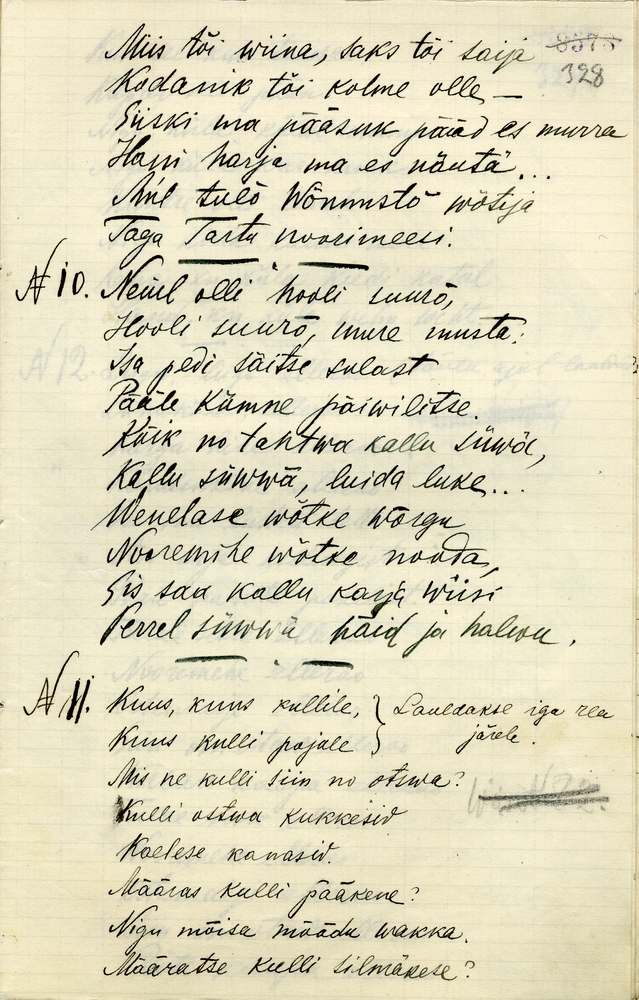 Miis tõi wiina, saks tõi saija
8575
328
Kodanik tõi kolme olle —
Siiski ma pääsuk pääd es murra
Hani harja ma es näutä...
Mil tulõ Wõnnustõ wõtja
Taga Tartu noorimeesi.
№ 10. Neiul olli hooli suurõ,
Hooli suurõ, mure musta:
Isa pedi säitse sulast
Pääle kümne päiwilitse.
Kõik no tahtwa kallu süwwä,
Kallu süwwä, luida luke...
Wenelase wõtke wõrgu
Nooremihe wõtke nooda,
Sis saa kallu karja wiisi
Perrel süwwä häid ja halwu.
№ 11. Kuus, kuus kullile, } Lauldakse iga rea
Kuus kulli pojale } järele.
Mis ne kulli siin no otswa?
Kulli ostwa kukkesid
Kaelese kanasid.
Määras kulli pääkene?
Nigu mõisa mõõdu wakka.
Määratse kulli silmäkese?